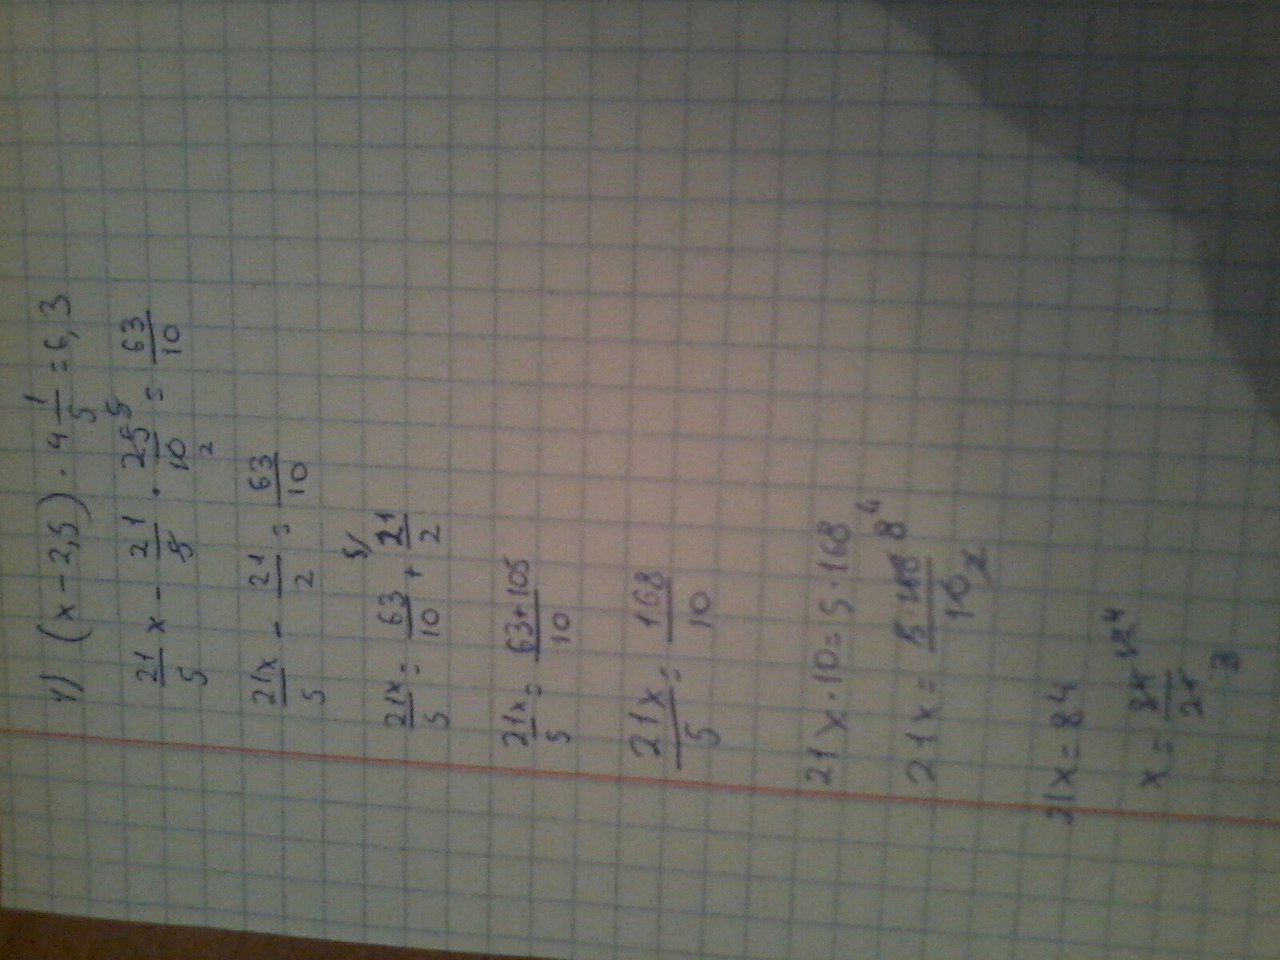 1) (x - 2,5) · 4 1/5 = 6,3
21/5 x - 21/5 · 25/10 = 63/10
5
2
21x/5 - 21/2 = 63/10
21x/5 = 63/10 + 21/2
5/
21x/5 = (63+105)/10
21x/5 = 168/10
21x · 10 = 5 · 168
21x = 5 · 168/10
84
2
21x = 84
x = 84/21
4
3